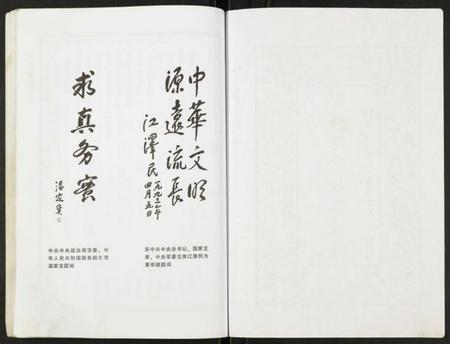 中華文明
源遠流長
江澤民
一九九三年
四月五日
原中共中央总书记、国家主
席、中央军委主席江泽民为
黄帝陵题词
求真务实
温家宝
中共中央政治局常委、中
华人民共和国国务院总理
温家宝题词